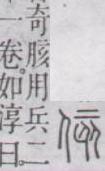 奇胲用兵二
一卷如淳曰